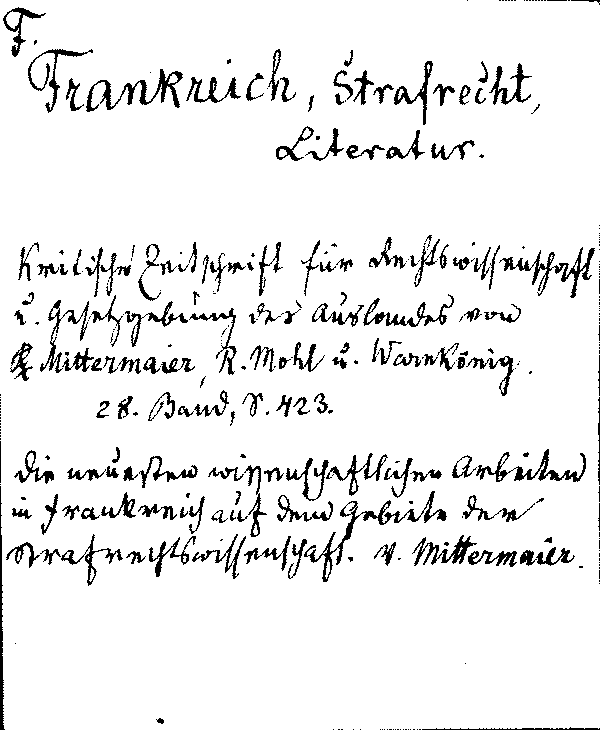 F.
Frankreich, Strafrecht,
Literatur.
Kritische Zeitschrift für Rechtswissenschaft
u. Gesetzgebung des Auslandes von
Mittermaier, R. Mohl u. Warnkönig.
28. Band, S. 423.
Die neuesten wissenschaftlichen Arbeiten
in Frankreich auf dem Gebiete der
Strafrechtswissenschaft. v. Mittermaier.